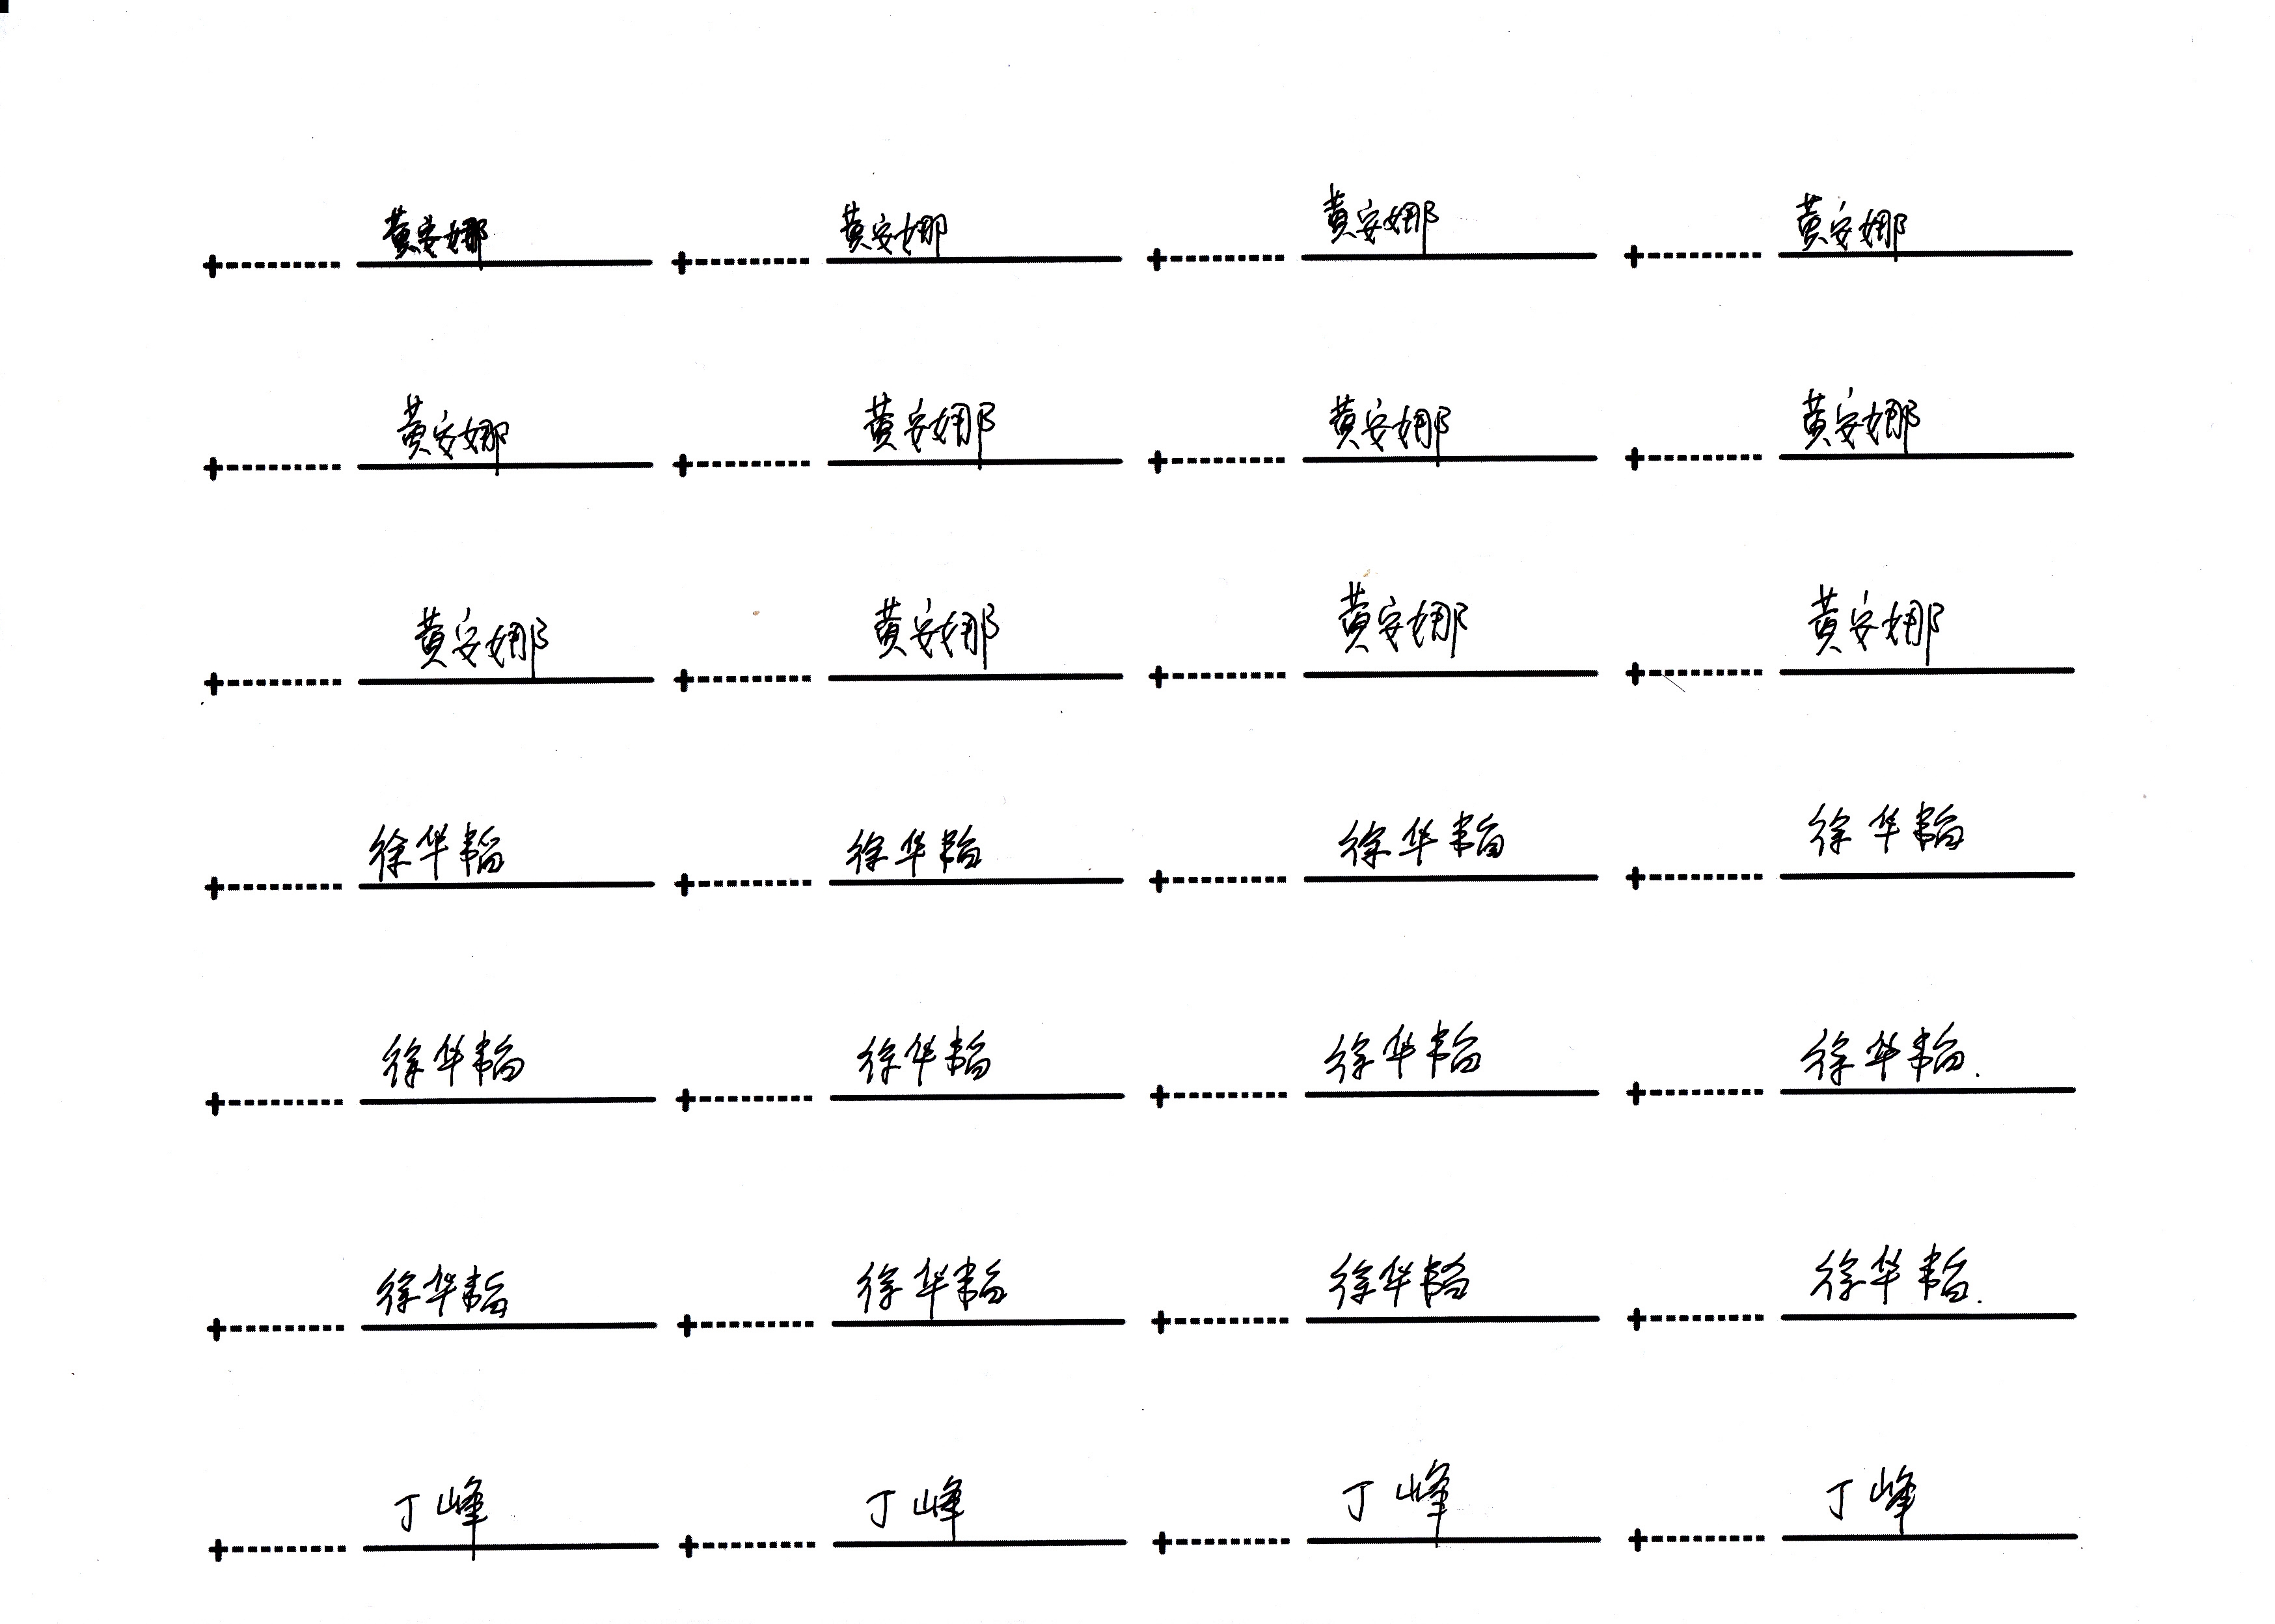 黄安娜 黄安娜 黄安娜 黄安娜
黄安娜 黄安娜 黄安娜 黄安娜
黄安娜 黄安娜 黄安娜 黄安娜
徐华韬 徐华韬 徐华韬 徐华韬
徐华韬 徐华韬 徐华韬 徐华韬.
徐华韬 徐华韬 徐华韬 徐华韬.
丁峰 丁峰 丁峰 丁峰